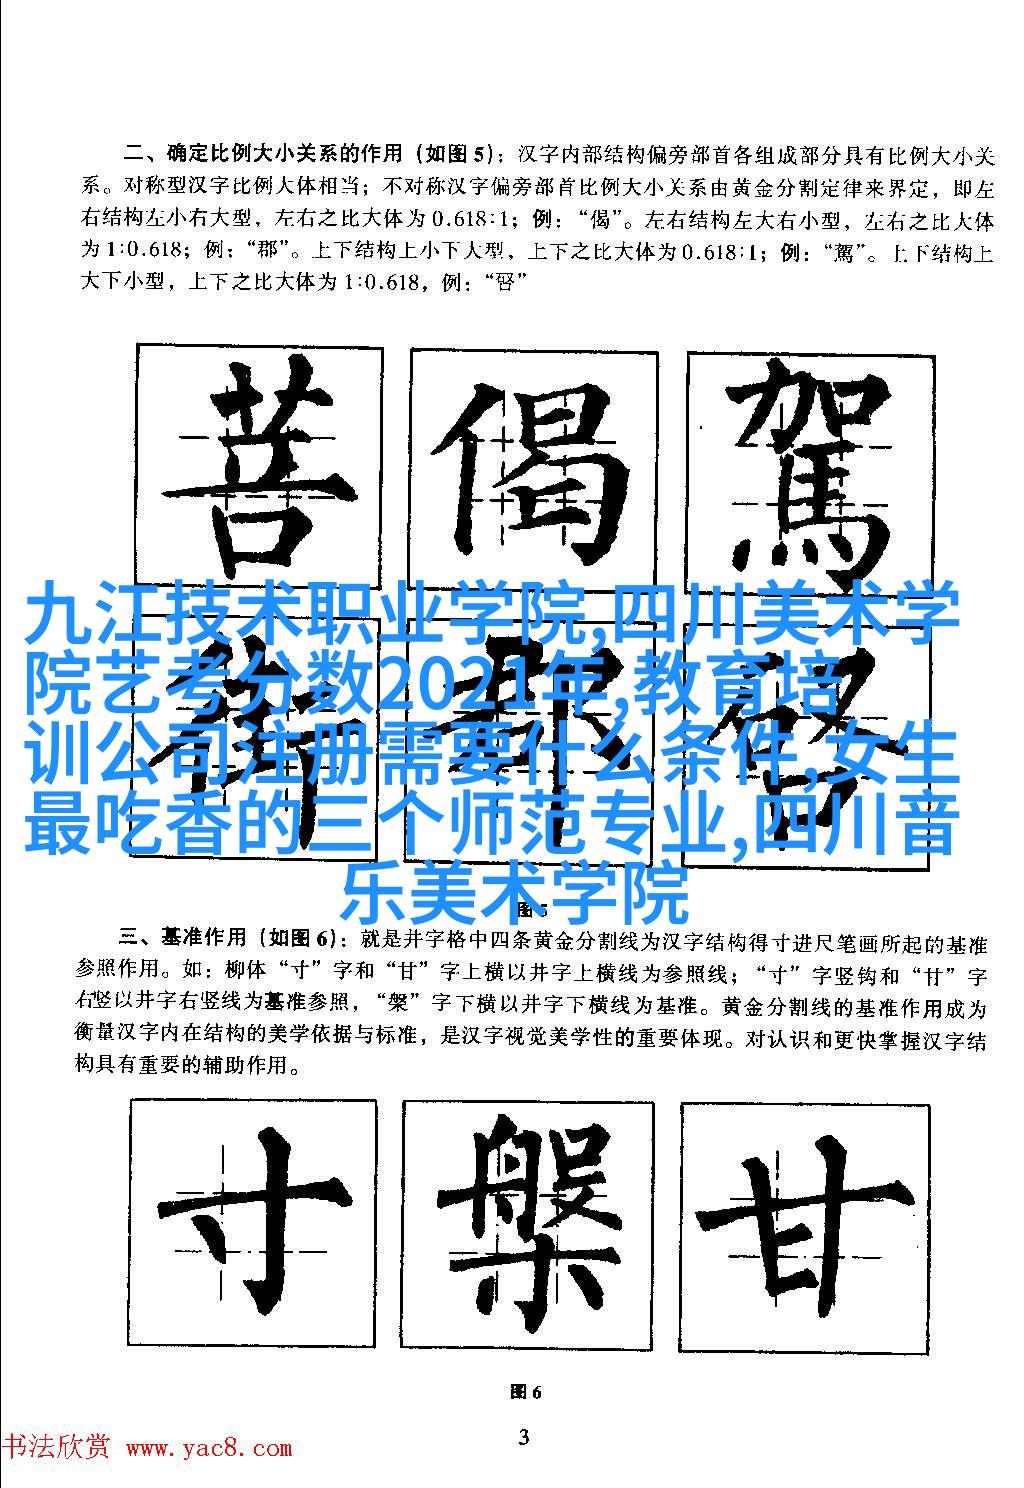 二、确定比例大小关系的作用（如图5）：汉字内部结构偏旁部首各组成部分具有比例大小关
系。对称型汉字比例大体相当；不对称汉字偏旁部首比例大小关系由黄金分割定律来界定，即左
右结构左小右大型，左右之比大体为0.618:1；例：“偈”。左右结构左大右小型，左右之比大体
为1:0.618；例：“郡”。上下结构上小下大型，上下之比大体为0.618:1；例：“駕”。上下结构上
大下小型，上下之比大体为1:0.618，例：“晵”
菩 偈 駕
九江技术职业学院,四川美术学
院艺考分数2021年,教育培
训公司注册需要什么条件,女生
最吃香的三个师范专业,四川音
乐美术学院
图5
三、基准作用（如图6）：就是井字格中四条黄金分割线为汉字结构得寸进尺笔画所起的基准
参照作用。如：柳体“寸”字和“甘”字上横以井字上横线为参照线；“寸”字竖钩和“甘”字
右竖以井字右竖线为基准参照，“槃”字下横以井字下横线为基准。黄金分割线的基准作用成为
衡量汉字内在结构的美学依据与标准，是汉字视觉美学性的重要体现。对认识和更快掌握汉字结
构具有重要的辅助作用。
寸 槃 甘
图6
3
书法欣赏 www.yac8.com